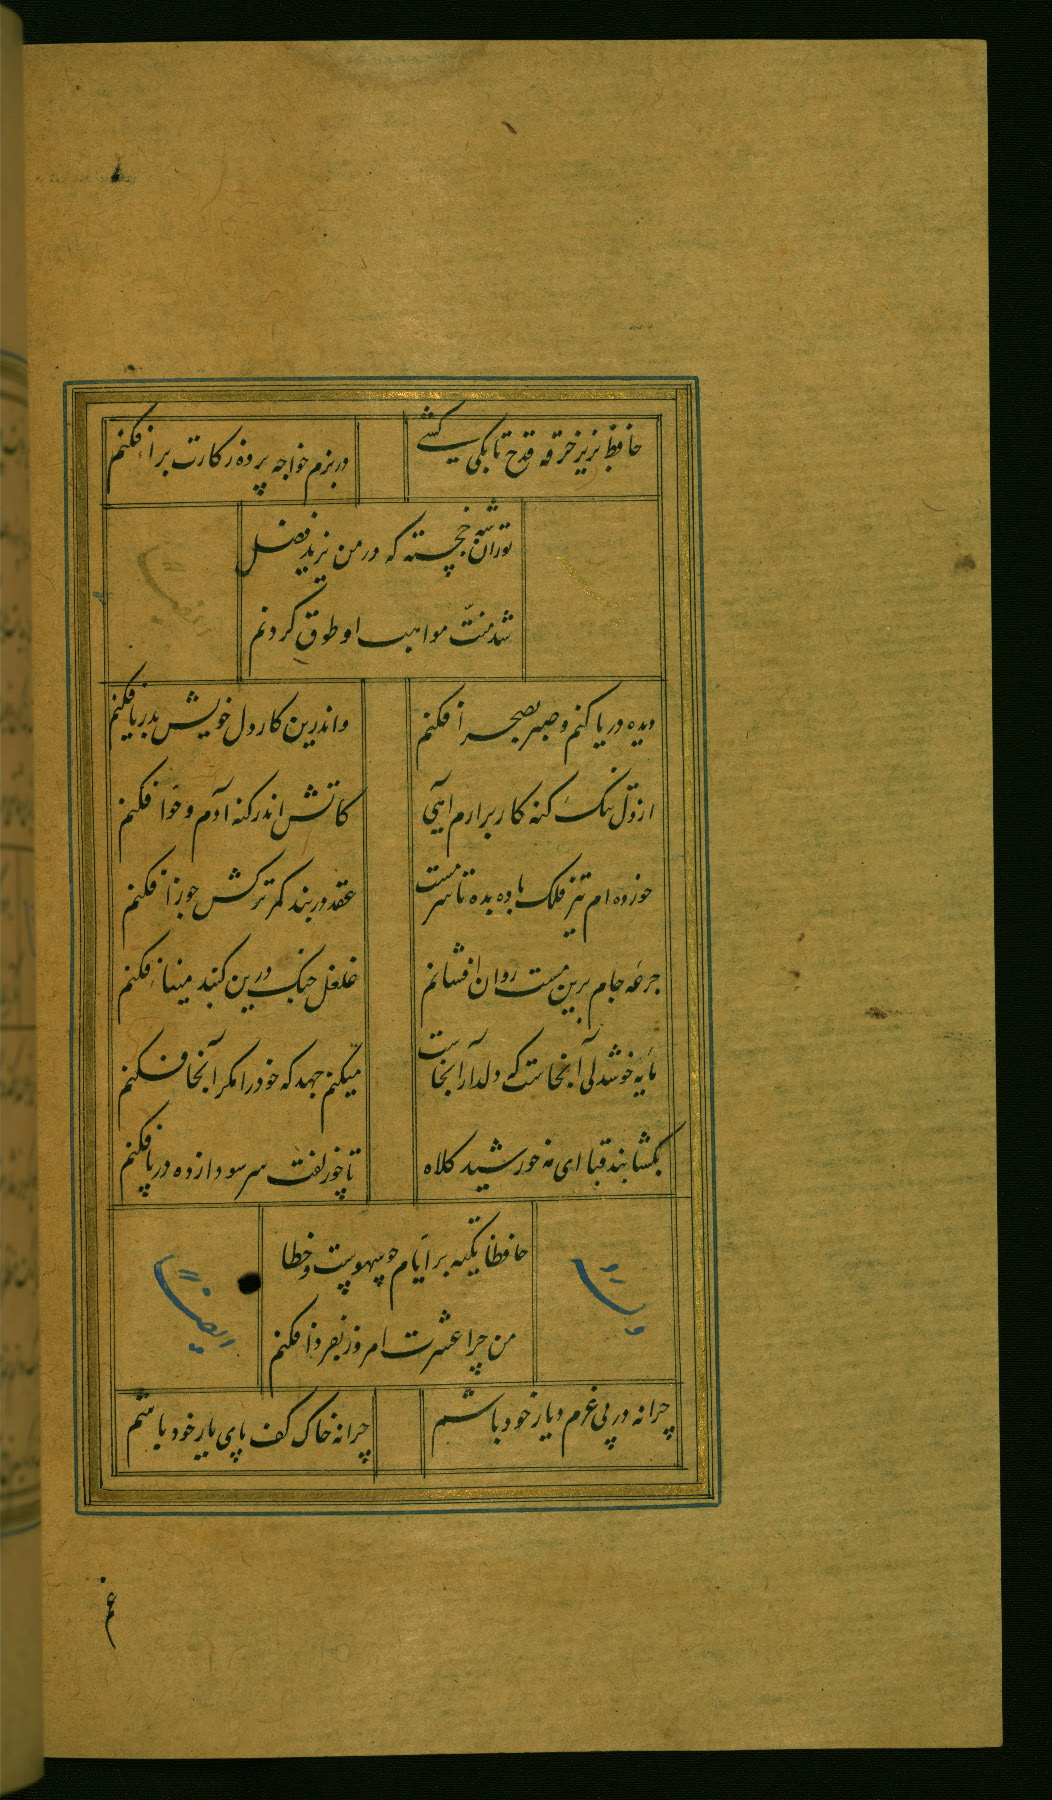 حافظ بزیر خرقه قدح تا بکی کشے
در بزم خواجه پرده ز کارت برافکنم
تورانشه خجسته که در من یزید فضل
شد منّت مواهب او طوق گردنم
دیده دریا کنم و صبر بصحرا فکنم
واندرین کار دل خویش بدریا فکنم
از دل تنک کنه کار برارم آهی
کاتش اندر کنه آدم و حوّا فکنم
خورده ام تیر فلک باده بده تا سرمست
عقد در بند کمر ترکش جوزا فکنم
جرعه جام برین مست روان افشانم
غلغل چنک درین کنبد مینا فکنم
مایه خوشدلی آنجاست که دلدار آنجاست
میکنم جهد که خود را مکر آنجا فکنم
بکشا بند قبا ای مه خورشید کلاه
تا چو زلفت سر سودازده در پا فکنم
حافظا تکیه بر ایّام چو سهوست و خطا
من چرا عشرت امروز بفردا فکنم
وله
ایضاً
چرا نه در پی عزم دیار خود باشم
چرا نه خاک کف پای یار خود باشم
غم